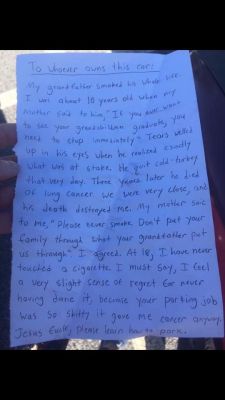 To whoever owns this car:
My grandfather smoked his whole life.
I was about 10 years old when my
mother said to him, "If you ever want
to see your grandchildren graduate, you
need to stop immediately." Tears welled
up in his eyes when he realized exactly
what was at stake. He quit cold-turkey
that very day. Three years later he died
of lung cancer. We were very close, and
his death destroyed me. My mother said
to me, "Please never smoke. Don't put your
family through what your grandfather put
us through". I agreed. At 18, I have never
touched a cigarette. I must say, I feel
a very slight sense of regret for never
having done it, because your parking job
was so shitty it gave me cancer anyway.
Jesus fuck, please learn how to park.